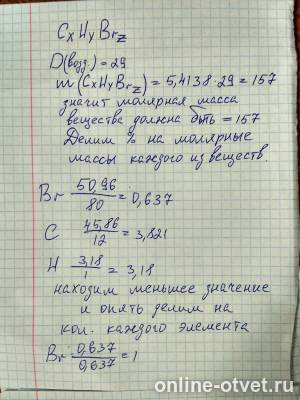 CxHyBrz
D(возд.) = 29
m(CxHyBrz) = 5,4138·29 = 157
значит молярная масса
вещества должна быть = 157
Делим % на молярные
массы каждого из веществ.
Br 50,96/80 = 0,637
C 45,86/12 = 3,821
H 3,18/1 = 3,18
находим меньшее значение
и опять делим на
кол. каждого элемента
Br 0,637/0,637 = 1
online-otvet.ru